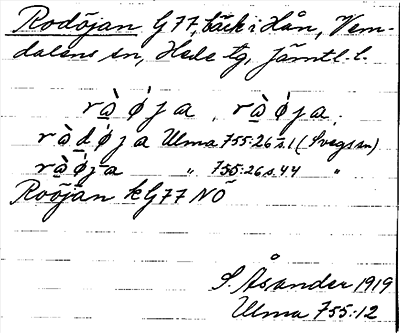 Rodöjan G77, bäck i Hån, Vem-
dalens sn, Hede tg, Jämtl. l.
rà̱ ǿ j a, rà̱ ǿ j a,
rà d ǿ j a Ulma 755:26 s.1 (Svegs sn)
rà̱ ǿ j a " 755:26 s.44 "
Roöjan kG77 NÖ
S. Åsander 1919
Ulma 755:12